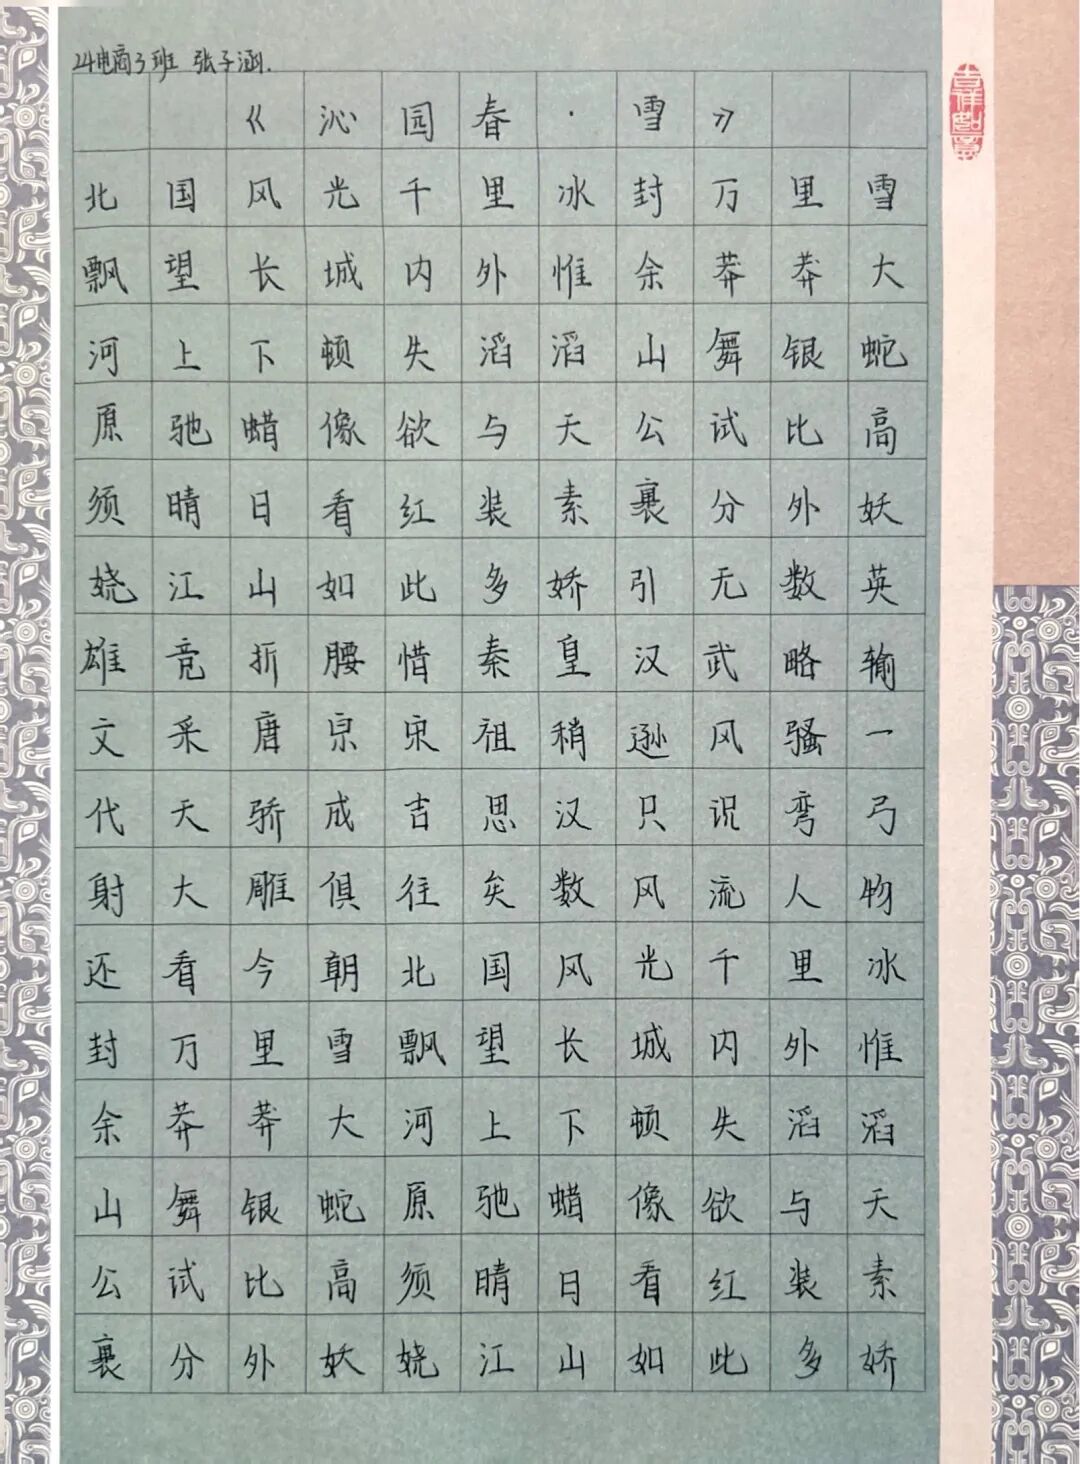 24电商3班 张子涵.
《沁园春·雪》
北国风光千里冰封万里雪
飘望长城内外惟余莽莽大
河上下顿失滔滔山舞银蛇
原驰蜡像欲与天公试比高
须晴日看红装素裹分外妖
娆江山如此多娇引无数英
雄竞折腰惜秦皇汉武略输
文采唐宗宋祖稍逊风骚一
代天骄成吉思汉只识弯弓
射大雕俱往矣数风流人物
还看今朝北国风光千里冰
封万里雪飘望长城内外惟
余莽莽大河上下顿失滔滔
山舞银蛇原驰蜡像欲与天
公试比高须晴日看红装素
裹分外妖娆江山如此多娇
吉祥如意